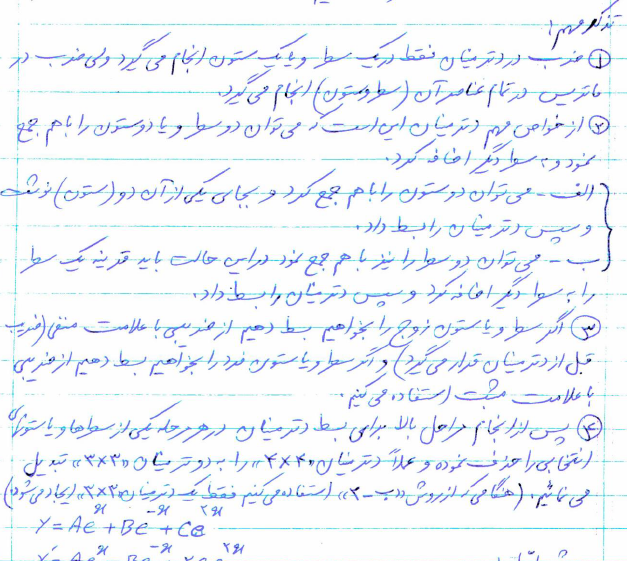 تذکر مهم:
① ضرب در دترمینان فقط در یک سطر و یا یک ستون انجام می گیرد ولی ضرب در
ماتریس در تمام عناصر آن (سطر و ستون) انجام می گیرد.
② از خواص مهم دترمینان این است که می توان دو سطر و یا دو ستون را با هم جمع
نمود و به سطر دیگر اضافه کرد.
الف - می توان دو ستون را با هم جمع کرد و بجای یکی از آن دو (ستون) نوشت
و سپس دترمینان را بسط داد.
ب - می توان دو سطر را نیز با هم جمع نمود در این حالت باید قرینه یک سطر
را به سطر دیگر اضافه کرد و سپس دترمینان را بسط داد.
③ اگر سطر و یا ستون زوج را بخواهیم بسط دهیم از ضریبی با علامت منفی (ضریب
قبل از دترمینان قرار می گیرد) و اگر سطر و یا ستون فرد را بخواهیم بسط دهیم از ضریبی
با علامت مثبت استفاده می کنیم.
④ پس از انجام مراحل بالا برای بسط دترمینان در هر مرحله یکی از سطرها و یا ستونهای
انتخابی را حذف نموده و عملاً دترمینان «۴×۴» را به دو ترمینان «۳×۳» تبدیل
می نمائیم. (هنگامی که از روش «ب-۲» استفاده می کنیم فقط یک دترمینان «۳×۳» ایجاد می شود)
Y = Ae^x + Be^-x + Ce^2x